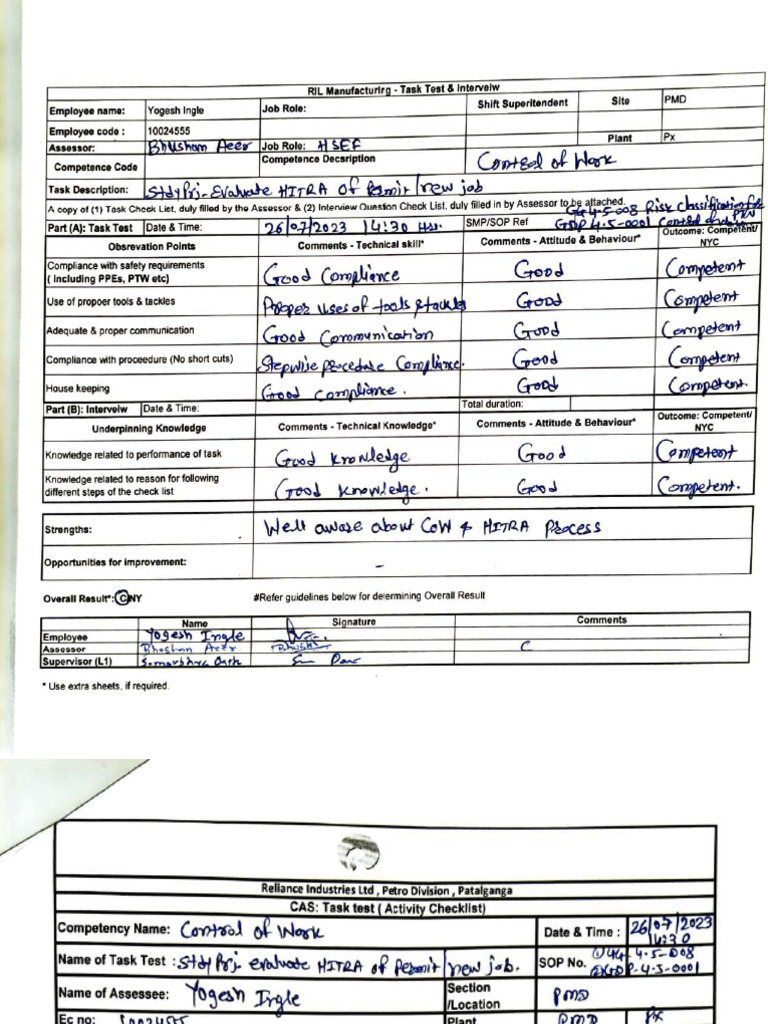 RIL Manufacturirg - Task Test & Interveiw
Employee name: Yogesh Ingle Job Role: Shift Superitendent Site PMD
Employee code : 10024555 Plant Px
Assessor: Bhushan Job Role: HSEF
Competence Code Competence Decsription Control of Work
Task Description: Stdy Prj- Evaluate HITRA of Permit/new job
A copy of (1) Task Check List, duly filled by the Assessor & (2) Interview Question Check List, duly filled in by Assessor to be attached.
4.5-008 Risk Classification for PTW
Part (A): Task Test Date & Time: 26/07/2023 14:30 Hrs. SMP/SOP Ref GDP 4.5-0001 Control of work
Obsrevation Points Comments - Technical skill* Comments - Attitude & Behaviour* Outcome: Competent/ NYC
Compliance with safety requirements ( including PPEs, PTW etc) Good Compliance Good Competent
Use of propoer tools & tackles Proper uses of tools & tackles Good Competent
Adequate & proper communication Good Communication Good Competent
Compliance with proceedure (No short cuts) Stepwise procedure Compliance. Good Competent
House keeping Good compliance. Good Competent.
Part (B): Interveiw Date & Time: Total duration:
Underpinning Knowledge Comments - Technical Knowledge* Comments - Attitude & Behaviour* Outcome: Competent/ NYC
Knowledge related to performance of task Good knowledge Good Competent
Knowledge related to reason for following different steps of the check list Good knowledge. Good Competent.
Strengths: Well aware about CoW & HITRA Process
Opportunities for improvement: -
Overall Result*: C NY #Refer guidelines below for determining Overall Result
Name Signature Comments
Employee Yogesh Ingle
Assessor Bhushan C
Supervisor (L1)
* Use extra sheets, if required.
Reliance Industries Ltd , Petro Division , Patalganga
CAS: Task test ( Activity Checklist)
Competency Name: Control of Work Date & Time : 26/07/2023 14:30
Name of Task Test : Stdy Prj- evaluate HITRA of Permit/new job. SOP No. 4.5-008 4.5-0001
Name of Assessee: Yogesh Ingle Section /Location PMD
Ec no: 10024555 Plant PMD Px